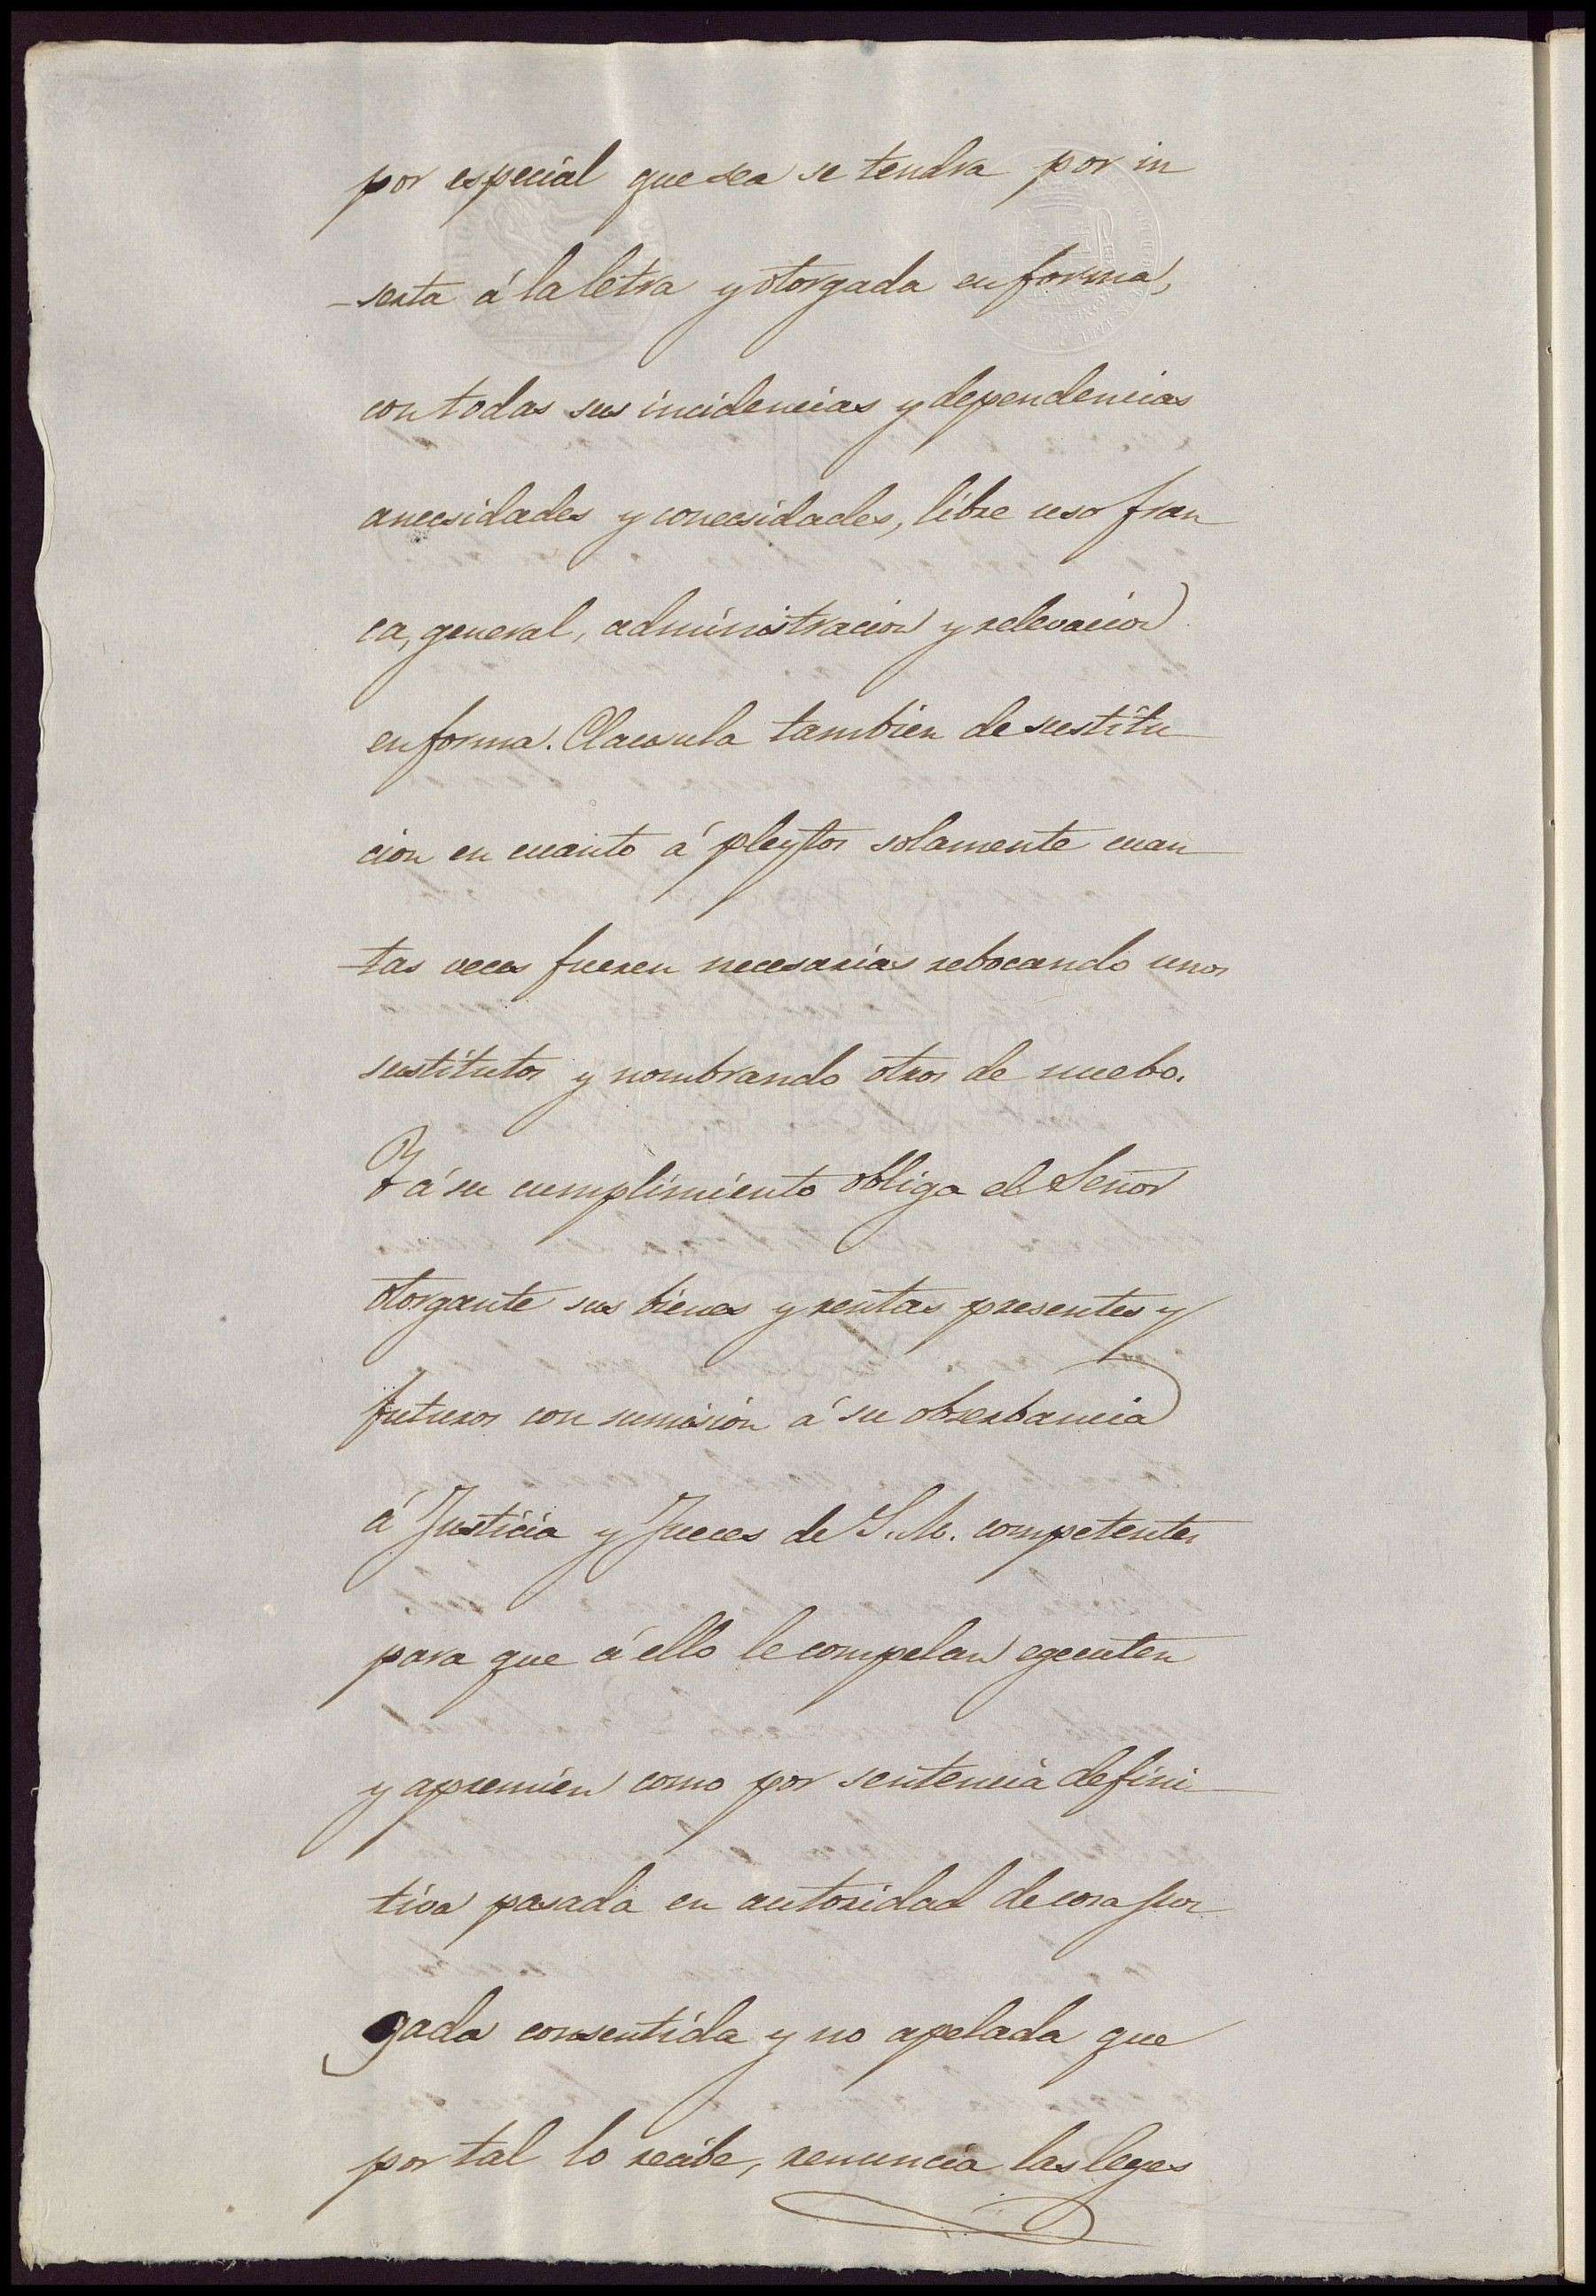 por especial que sea se tendra por in
serta á la letra y otorgada en forma,
con todas sus incidencias y dependencias
anecsidades y conecsidades, libre uso fran
ca, general, administracion y relevacion
en forma. Clausula tambien de sustitu
cion en cuanto á pleytos solamente cuan
tas veces fueren necesarias rebocando unos
sustitutos y nombrando otros de nuebo.
Y á su cumplimiento obliga el Señor
otorgante sus bienes y rentas presentes y
futuros con sumision á su obserbancia
á Justicia y Jueces de S. M. competentes
para que á ello le compelan egecuten
y apremien como por sentencia defini
tiva pasada en autoridad de cosa juz
gada consentida y no apelada que
por tal lo recibe, renuncia las leyes